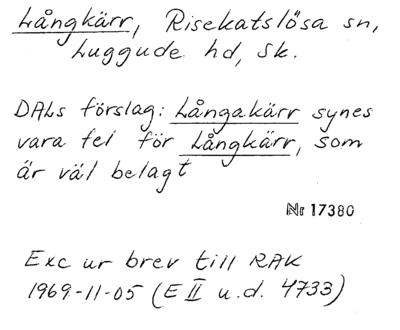 Långkärr, Risekatslösa sn,
Luggude hd, Sk.
DALs förslag: Långakärr synes
vara fel för Långkärr, som
är väl belagt
Nr 17380
Exc ur brev till RAK
1969-11-05 (E II u.d. 4733)